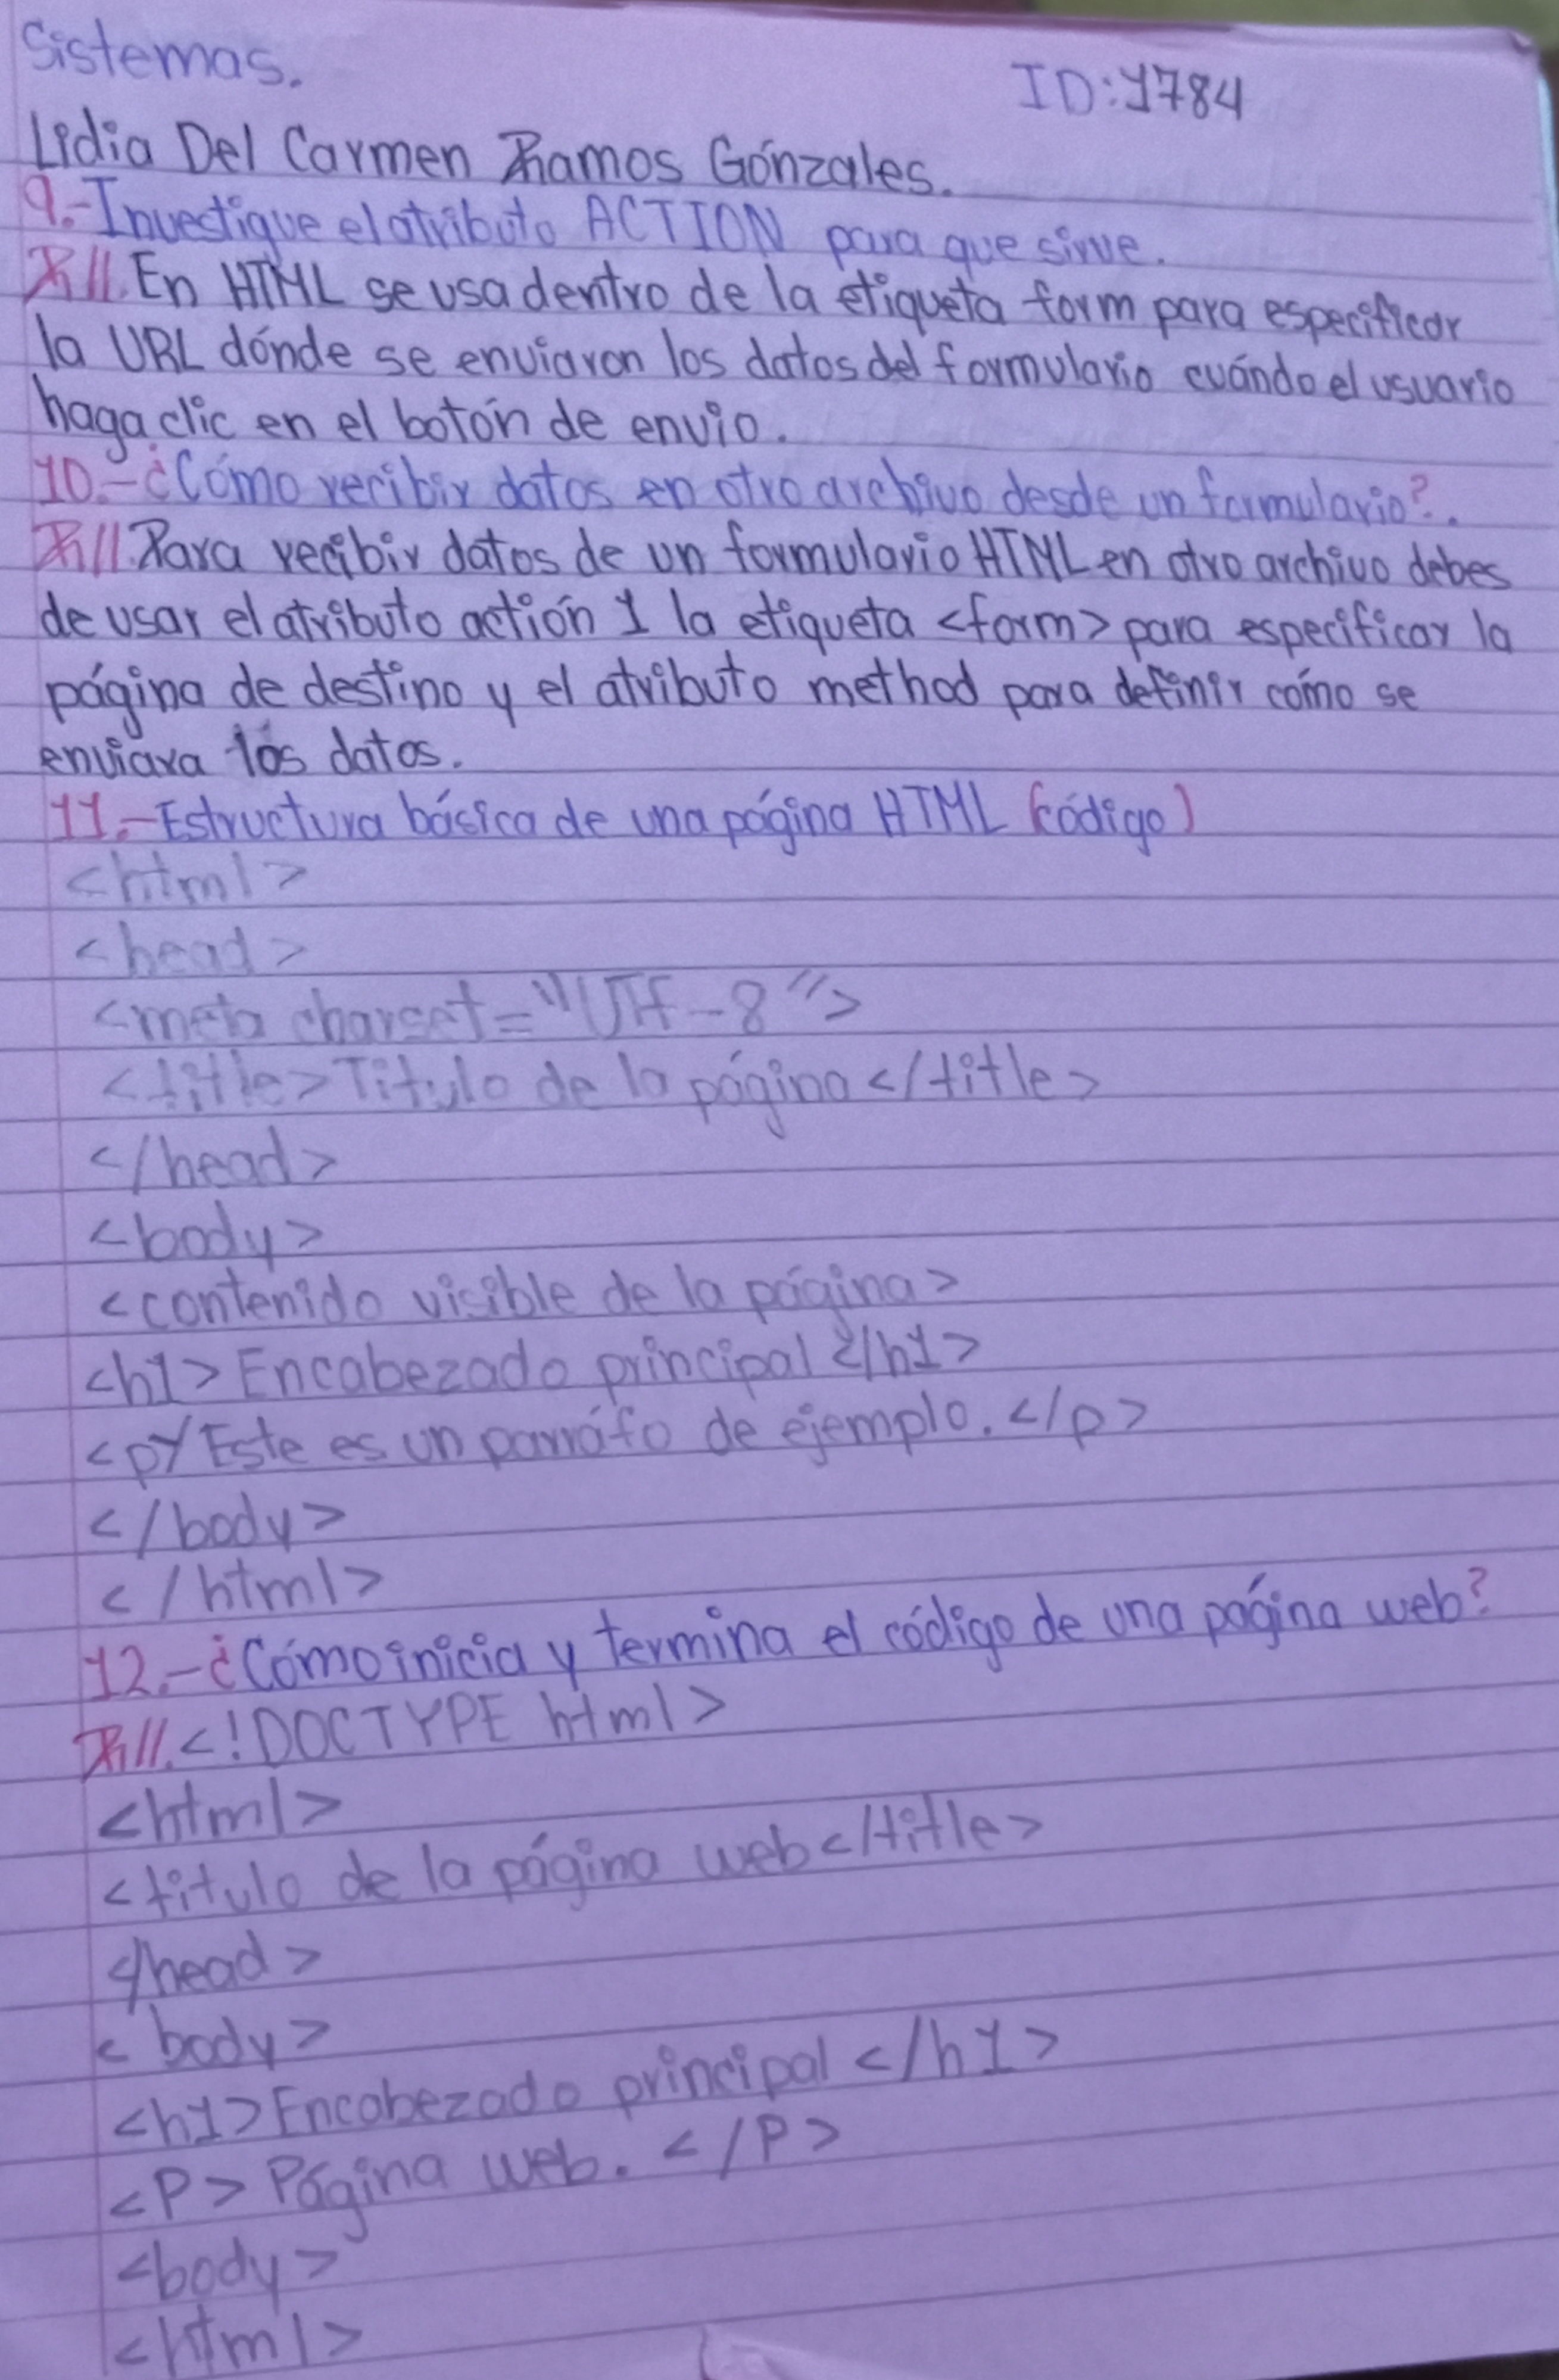 Sistemas.
ID:1784
Lidia Del Carmen Ramos Gónzales.
9.-Investigue el atributo ACTION para que sirve.
R//.En HTML se usa dentro de la etiqueta form para especificar
la URL dónde se enviaron los datos del formulario cuándo el usuario
haga clic en el botón de envio.
10.-¿Cómo recibir datos en otro archivo desde un formulario?.
R//.Para recibir datos de un formulario HTML en otro archivo debes
de usar el atributo actión 1 la etiqueta <form> para especificar la
página de destino y el atributo method para definir cómo se
enviara los datos.
11.-Estructura básica de una página HTML (código)
<html>
<head>
<meta charset="UTF-8">
<title>Titulo de la página</title>
</head>
<body>
<contenido visible de la página>
<h1>Encabezado principal</h1>
<p>Este es un parráfo de ejemplo.</p>
</body>
</html>
12.-¿Cómo inicia y termina el código de una página web?
R//.<!DOCTYPE html>
<html>
<titulo de la página web</title>
</head>
<body>
<h1>Encabezado principal</h1>
<P>Página web.</P>
<body>
<html>